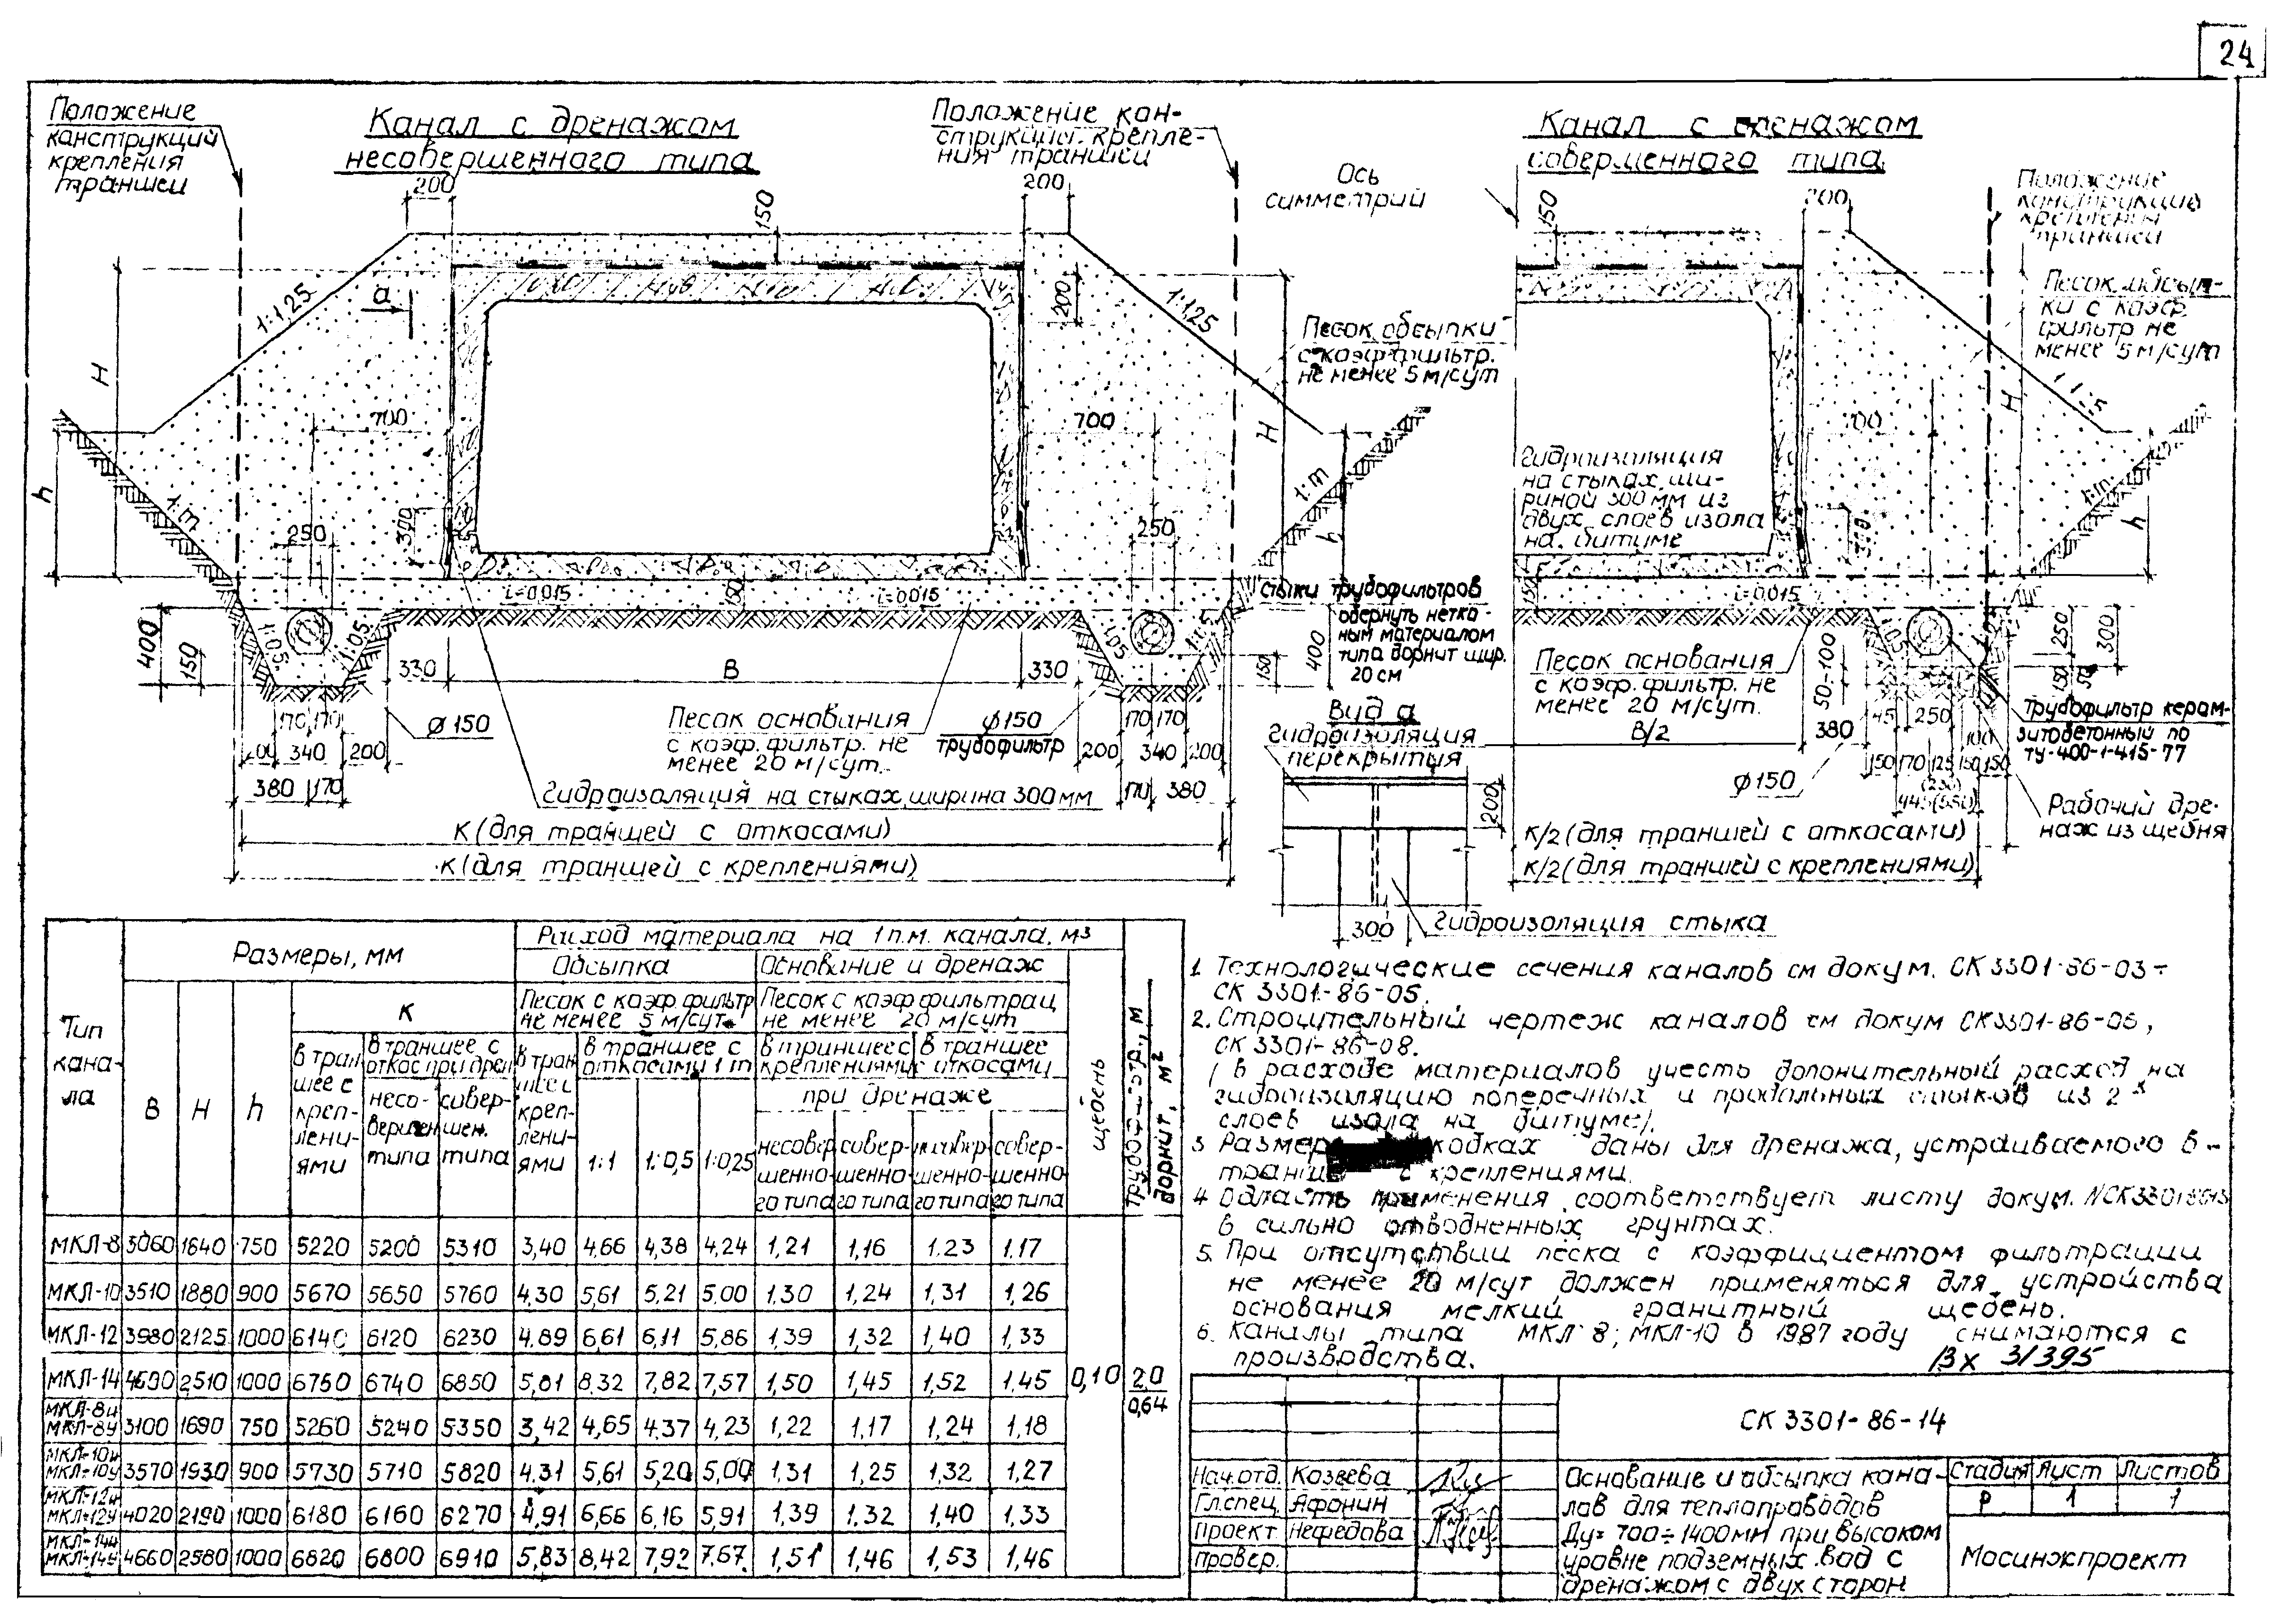 24
Положение
конструкций
крепления
траншеи
Канал с дренажом
несовершенного типа
Положение кон-
струкции крепле-
ния траншеи
Ось
симметрий
Канал с дренажом
совершенного типа
Положение
конструкций
крепления
траншеи
200
150
200
150
200
1:1,25
а
H
700
h
1:m
250
300
200
1:1,25
Песок обсыпки
с коэф.фильтр.
не менее 5 м/сут
700
H
1:m
h
250
Песок обсып-
ки с коэф.
фильтр не
менее 5 м/сут
H
h
1:m
Гидроизоляция
на стыках, ши-
риной 300 мм из
двух слоев изола
на битуме
i=0,015
150
i=0,015
i=0,015
150
400
150
1:0,5
1:0,5
330
B
330
170 170
200 340 200
380 170
Ø 150
Песок основания
с коэф. фильтр. не
менее 20 м/сут.
Ø150
трубофильтр
170 170
200 340 200
170 380
400
150
стыки трубофильтров
обернуть нетка-
ным материалом
типа дорнит шир.
20 см
Гидроизоляция на стыках, ширина 300 мм
К (для траншей с откосами)
К (для траншей с креплениями)
Вид а
Гидроизоляция
перекрытия
200
300
Гидроизоляция стыка
Песок основания
с коэф. фильтр. не
менее 20 м/сут.
50-100
B/2
380
45 250
100
150 170 125 150 150
(230)
445(550)
Ø150
250
300
150
50
Трубофильтр керам-
зитобетонный по
ТУ-400-1-415-77
Рабочий дре-
наж из щебня
К/2 (для траншей с откосами)
К/2 (для траншей с креплениями)
Тип
кана-
ла
Размеры, мм
Расход материала на 1 п.м. канала, м3
Обсыпка
Основание и дренаж
Песок с коэф. фильтр
не менее 5 м/сут.
Песок с коэф фильтрац
не менее 20 м/сут
щебень
Трубофильтр., м
дорнит, м2
B H h
К
в тран
шее с
креп-
лени-
ями
в траншее с
откос при дрен
несо-
вершен
типа
совер-
шен.
типа
в тран
шее с
креп-
лени-
ями
в траншее с
откосами 1:m
1:1 1:0,5 1:0,25
в траншее с
креплениями
в траншее
с откосами
при дренаже
несовер
шенно-
го типа
совер-
шенно-
го типа
несовер-
шенно-
го типа
совер-
шенно-
го типа
МКЛ-8 3060 1640 750 5220 5200 5310 3,40 4,66 4,38 4,24 1,21 1,16 1.23 1.17
МКЛ-10 3510 1880 900 5670 5650 5760 4.30 5,61 5,21 5.00 1.30 1,24 1,31 1,26
МКЛ-12 3980 2125 1000 6140 6120 6230 4,89 6,61 6,11 5,86 1,39 1,32 1,40 1,33
МКЛ-14 4690 2510 1000 6760 6740 6850 5,81 8,32 7,82 7,57 1,50 1,45 1,52 1.45
0,10
2,0
0,64
МКЛ-8и
МКЛ-8у 3100 1690 750 5260 5240 5350 3,42 4,65 4.37 4,23 1,22 1,17 1,24 1,18
МКЛ-10и
МКЛ-10у 3570 1930 900 5730 5710 5820 4,31 5,61 5,20 5,00 1,31 1,25 1,32 1,27
МКЛ-12и
МКЛ-12у 4020 2190 1000 6180 6160 6270 4,91 6,66 6,16 5,91 1,39 1.32 1,40 1.33
МКЛ-14и
МКЛ-14у 4660 2580 1000 6820 6800 6910 5,83 8,42 7,92 7,67 1,51 1,46 1,53 1,46
1. Технологические сечения каналов см докум. СК 3301-86-03÷
СК 3301-86-05.
2. Строительный чертеж каналов см докум СК3301-86-06,
СК 3301-86-08.
( в расходе материалов учесть допонительный расход на
гидроизоляцию поперечных и продольных стыков из 2х
слоев изола на битуме).
3 Размер кодках даны для дренажа, устраиваемого в
транше с креплениями.
4 Область применения соответствует листу докум.
в сильно обводненных грунтах.
5. При отсутствии песка с коэффициентом фильтрации
не менее 20 м/сут должен применяться для устройства
основания мелкий гранитный щебень.
6. Каналы типа МКЛ 8; МКЛ-10 в 1987 году снимаются с
производства.
Вх 31395
СК 3301-86-14
Нач.отд. Козеева
Гл.спец. Афонин
Проект Нефедова
Провер.
Основание и обсыпка кана-
лов для теплопроводов
Ду= 700÷1400мм при высоком
уровне подземных вод с
дренажом с двух сторон
Стадия Лист Листов
Р 1 1
Мосинжпроект